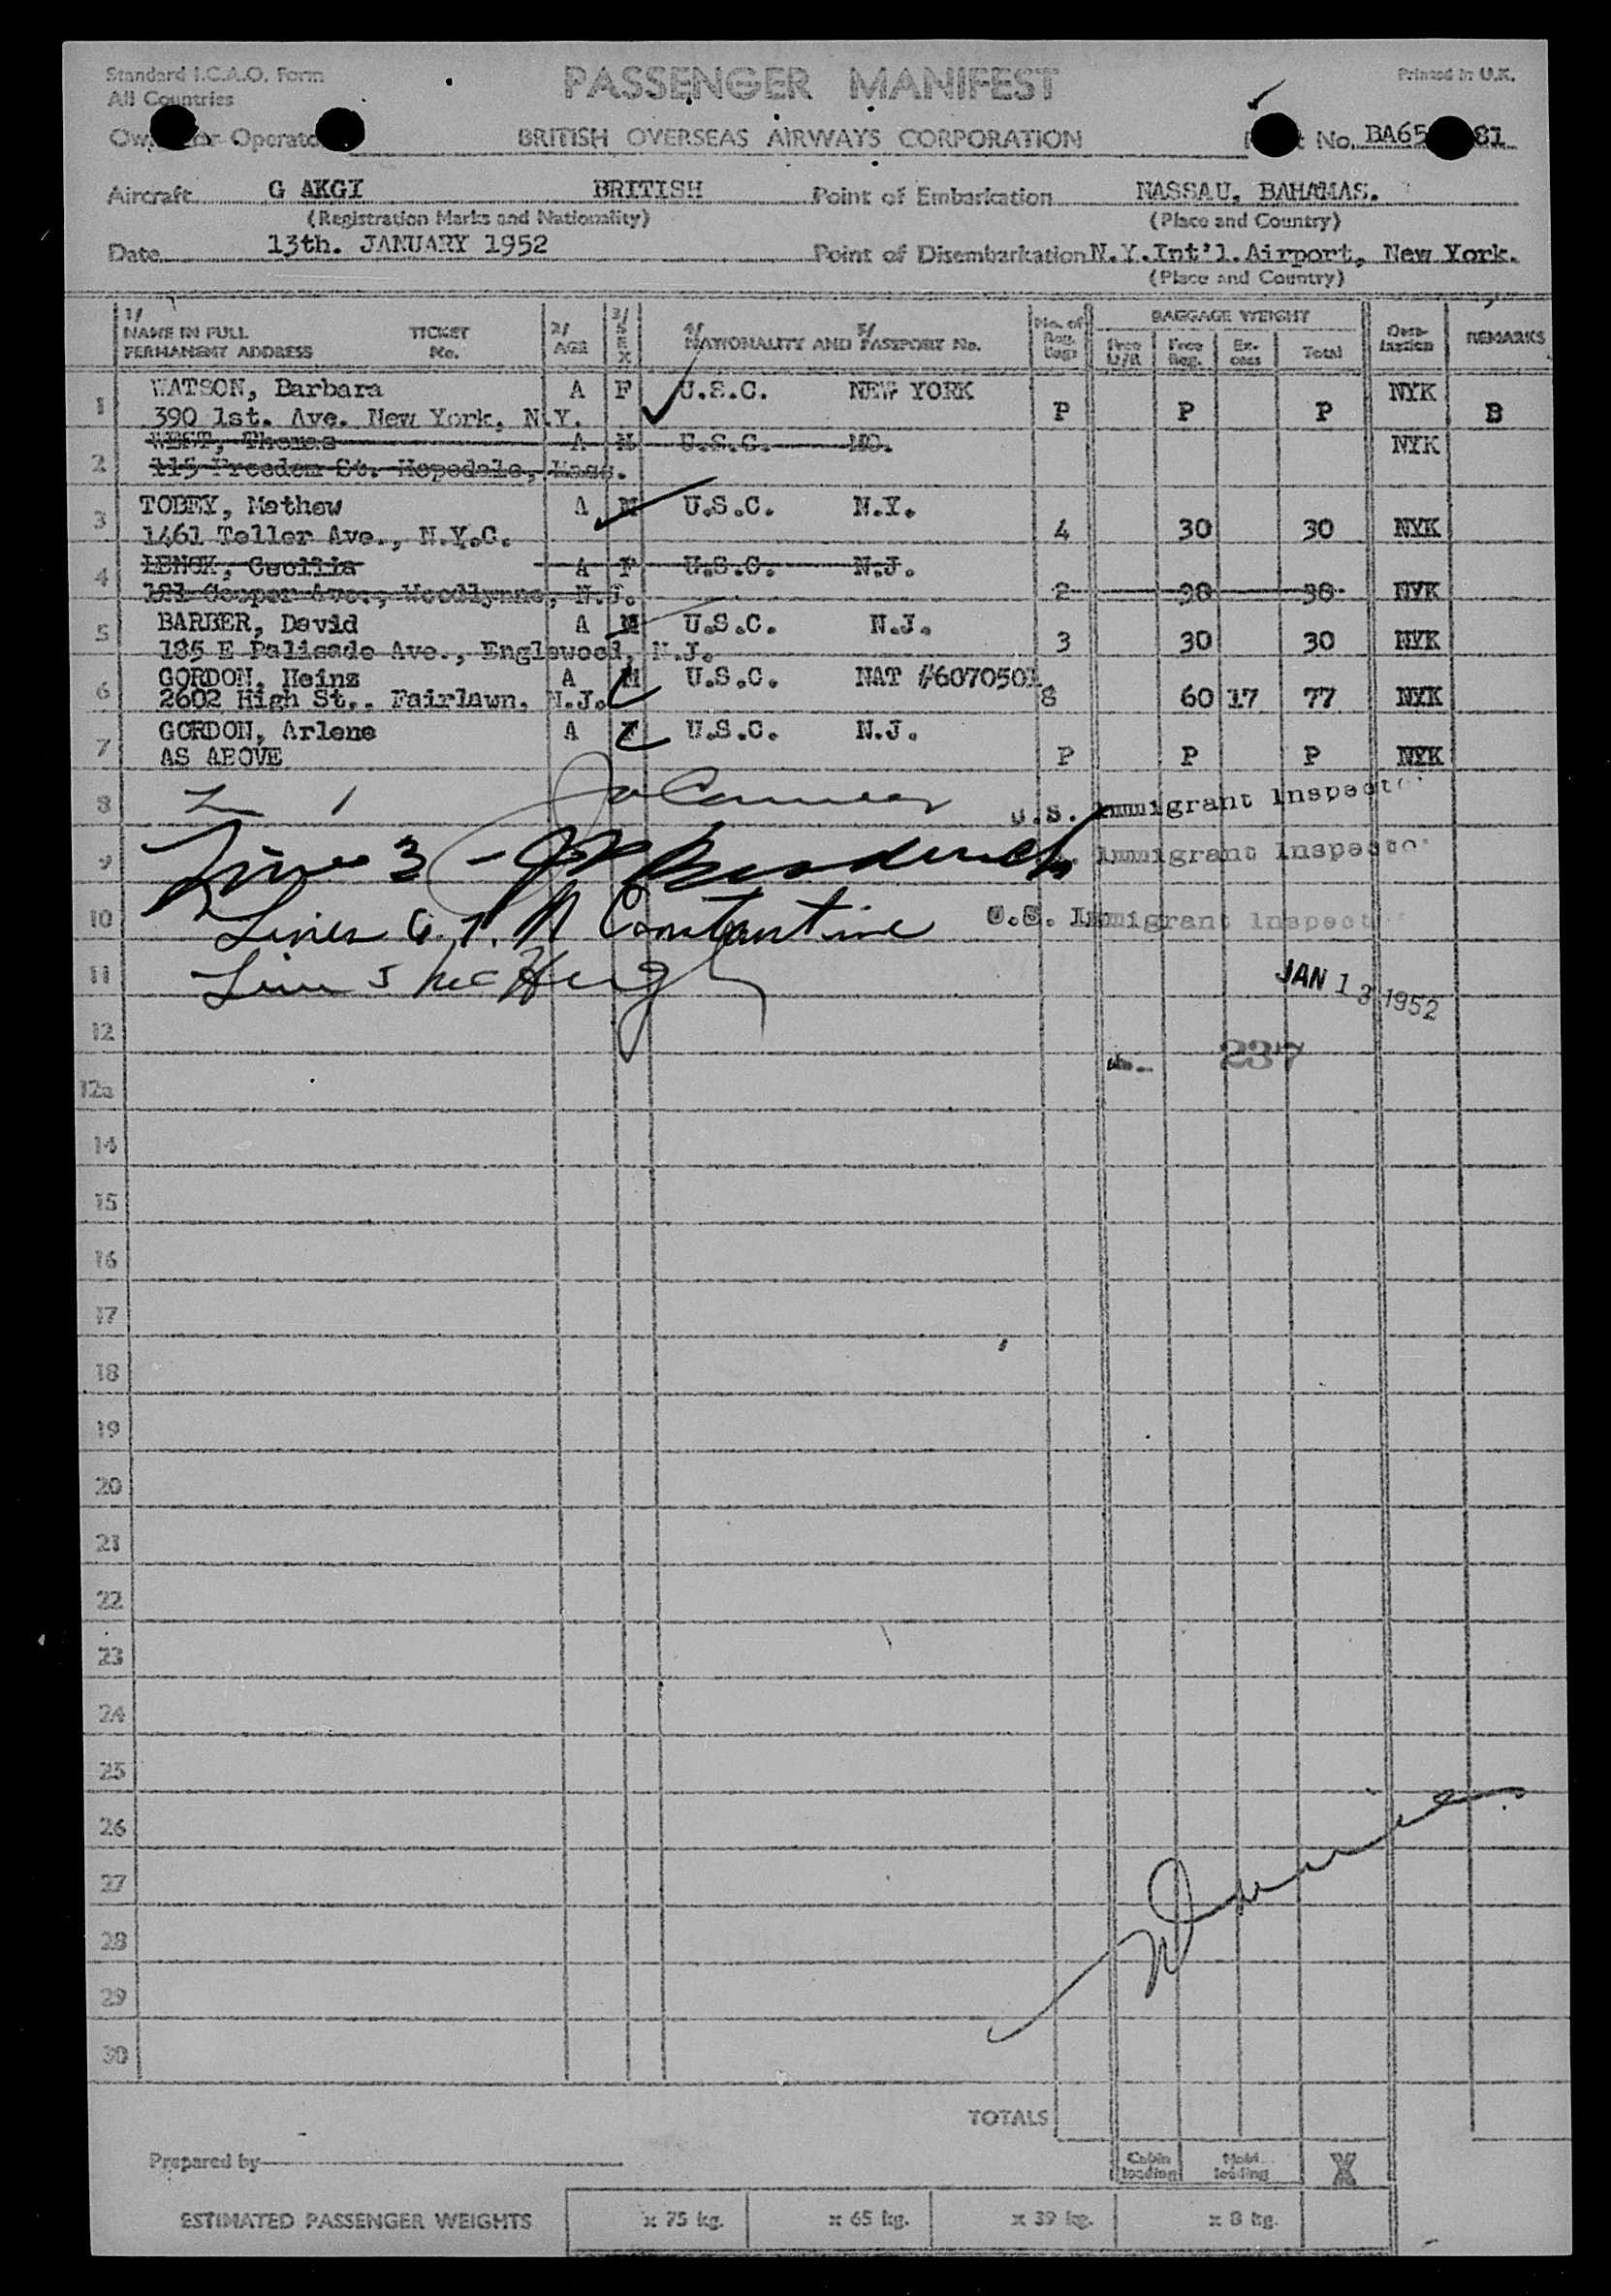 Standard I.C.A.O. Form
All Countries
PASSENGER MANIFEST
Printed in U.K.
BRITISH OVERSEAS AIRWAYS CORPORATION
No. BA65 81
Aircraft G AKGI BRITISH Point of Embarkation NASSAU, BAHAMAS.
(Registration Marks and Nationality) (Place and Country)
Date 13th. JANUARY 1952 Point of Disembarkation N.Y.Int'l.Airport, New York.
(Place and Country)
1/ NAME IN FULL PERMANENT ADDRESS TICKET No. 2/ AGE 3/ SEX 4/ NATIONALITY AND 5/ PASSPORT No. No. of Reg. Bags BAGGAGE WEIGHT Free U/R Free Reg. Ex-cess Total Dest-ination REMARKS
1 WATSON, Barbara A F U.S.C. NEW YORK NYK
390 1st. Ave. New York, N.Y. P P P B
2 WEST, Thomas A M U.S.C. MO. NYK
115 Freedom St. Hopedale, Mass.
3 TOBEY, Mathew A M U.S.C. N.Y.
1461 Teller Ave., N.Y.C. 4 30 30 NYK
4 LENOX, Cecilia A F U.S.C. N.J.
181 Cooper Ave., Woodlynne, N.J. 2 38 38 NYK
5 BARBER, David A M U.S.C. N.J.
185 E Palisade Ave., Englewood, N.J. 3 30 30 NYK
6 GORDON, Heinz A M U.S.C. NAT #6070501
2602 High St,. Fairlawn, N.J. 8 60 17 77 NYK
7 GORDON, Arlene A F U.S.C. N.J.
AS ABOVE P P P NYK
8 1 U.S. Immigrant Inspector
9 3 - Immigrant Inspector
10 Lines 6, 7. N Constantine U.S. Immigrant Inspect
11 Line 5 McHugh JAN 13 1952
12 237
12a
14
15
16
17
18
19
20
21
22
23
24
25
26
27
28
29
30
TOTALS
Prepared by Cabin loading Hold loading X
ESTIMATED PASSENGER WEIGHTS x 75 kg. x 65 kg. x 39 kg. x 8 kg.